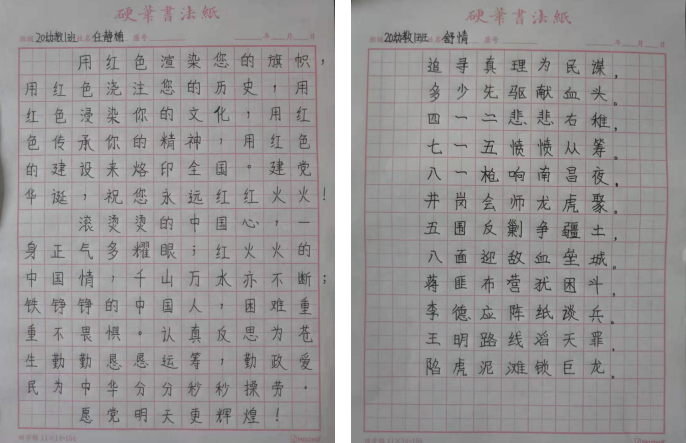 硬筆書法紙
班级 20幼教1班 姓名 任静楠 座号 年 月 日
用红色渲染您的旗帜，
用红色浇注您的历史，用
红色浸染你的文化，用红
色传承你的精神，用红色
的建设来烙印全国。建党
华诞，祝您永远红红火火！
滚烫烫的中国心，一
身正气多耀眼；红火火的
中国情，千山万水亦不断；
铁铮铮的中国人，困难重
重不畏惧。认真反思为苍
生勤勤恳恳运筹，勤政爱
民为中华分分秒秒操劳。
愿党明天更辉煌！
硬筆書法紙
班级 20幼教1班 姓名 舒情 座号 年 月 日
追寻真理为民谋，
多少先驱献血头。
四一一二悲悲右稚，
七一五愤愤从筹。
八一枪响南昌夜，
井岗会师龙虎聚。
五围反剿争疆土，
八面迎敌血垒城。
蒋匪布营犹困斗，
李德应阵纸谈兵。
王明路线滔天罪，
陷虎泥滩锁巨龙。